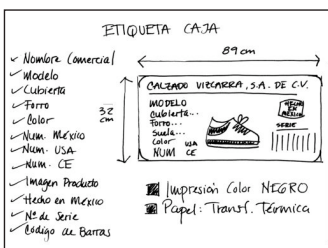 ETIQUETA CAJA
✓ Nombre Comercial
✓ Modelo
✓ Cubierta
✓ Forro
✓ Color
✓ Num. México
✓ Num. USA
✓ Num. CE
✓ Imagen Producto
✓ Hecho en México
✓ Nº de Serie
✓ Código de Barras
89 cm
32 cm
CALZADO VIZCARRA, S.A. DE C.V.
MODELO
Cubierta...
Forro...
Suela...
Color USA
NUM CE
HECHO EN MÉXICO
SERIE
Impresión Color NEGRO
Papel: Transf. Térmica